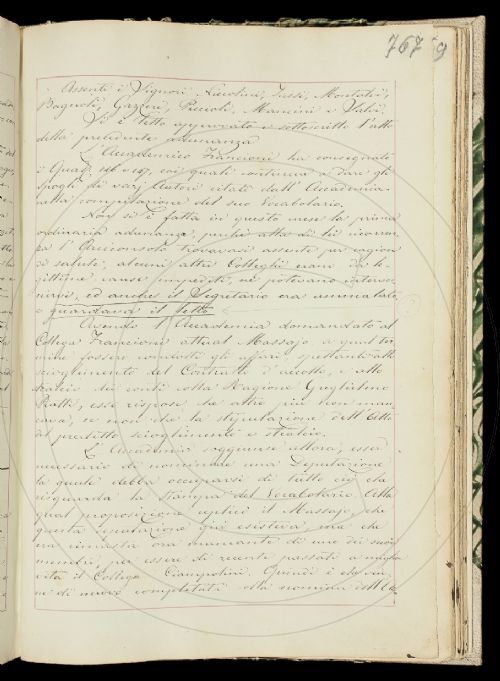 767 9
Assenti i Signori Niccolini, Zassi, Montalvi,
Bagnoli, Gazzeri, Piccioli, Mancini e Salvi.
Si è letto approvato e sottoscritto l'atto
della precedente adunanza
L'Accademico Francioni ha consegnato
i Quad. coi quali continua a dare gli
spogli di varj Autori citati dall'Accademia
alla compilazione del suo Vocabolario.
Non si è fatta in questo mese la prima
ordinaria adunanza, perchè alla di lei ricorren-
za l'Arciconsolo trovavasi assente per cagion
di salute, alcuni altri Colleghi erano da le-
gittime cause impediti, nè potevano interve-
nirvi, ed anche il Segretario era ammalato,
e guardava il letto
Avendo l'Accademia domandato al
Collega Francioni attual Massajo a qual ter-
mine fossero condotti gli affari spettanti allo
scioglimento del Contratto d'accollo, e allo
stralcio dei conti colla Ragione Guglielmo
Piatti, esso rispose che altro non man-
cava, se non che la stipulazione dell'Atto
del predetto scioglimento e stralcio.
L'Accademia soggiunse allora, esser
necessario di nominare una Deputazione
la quale debba occuparsi di tutto ciò che
risguarda la stampa del Vocabolario. Alla
qual proposizione replicò il Massajo, che
questa già esisteva, ma che
era rimasta ora mancante di uno dei suoi
membri, per essere di recente passato a miglior
vita il Collega Ciampolini. Quindi è che ven-
ne di nuovo completata colla nomina dell'Ac-